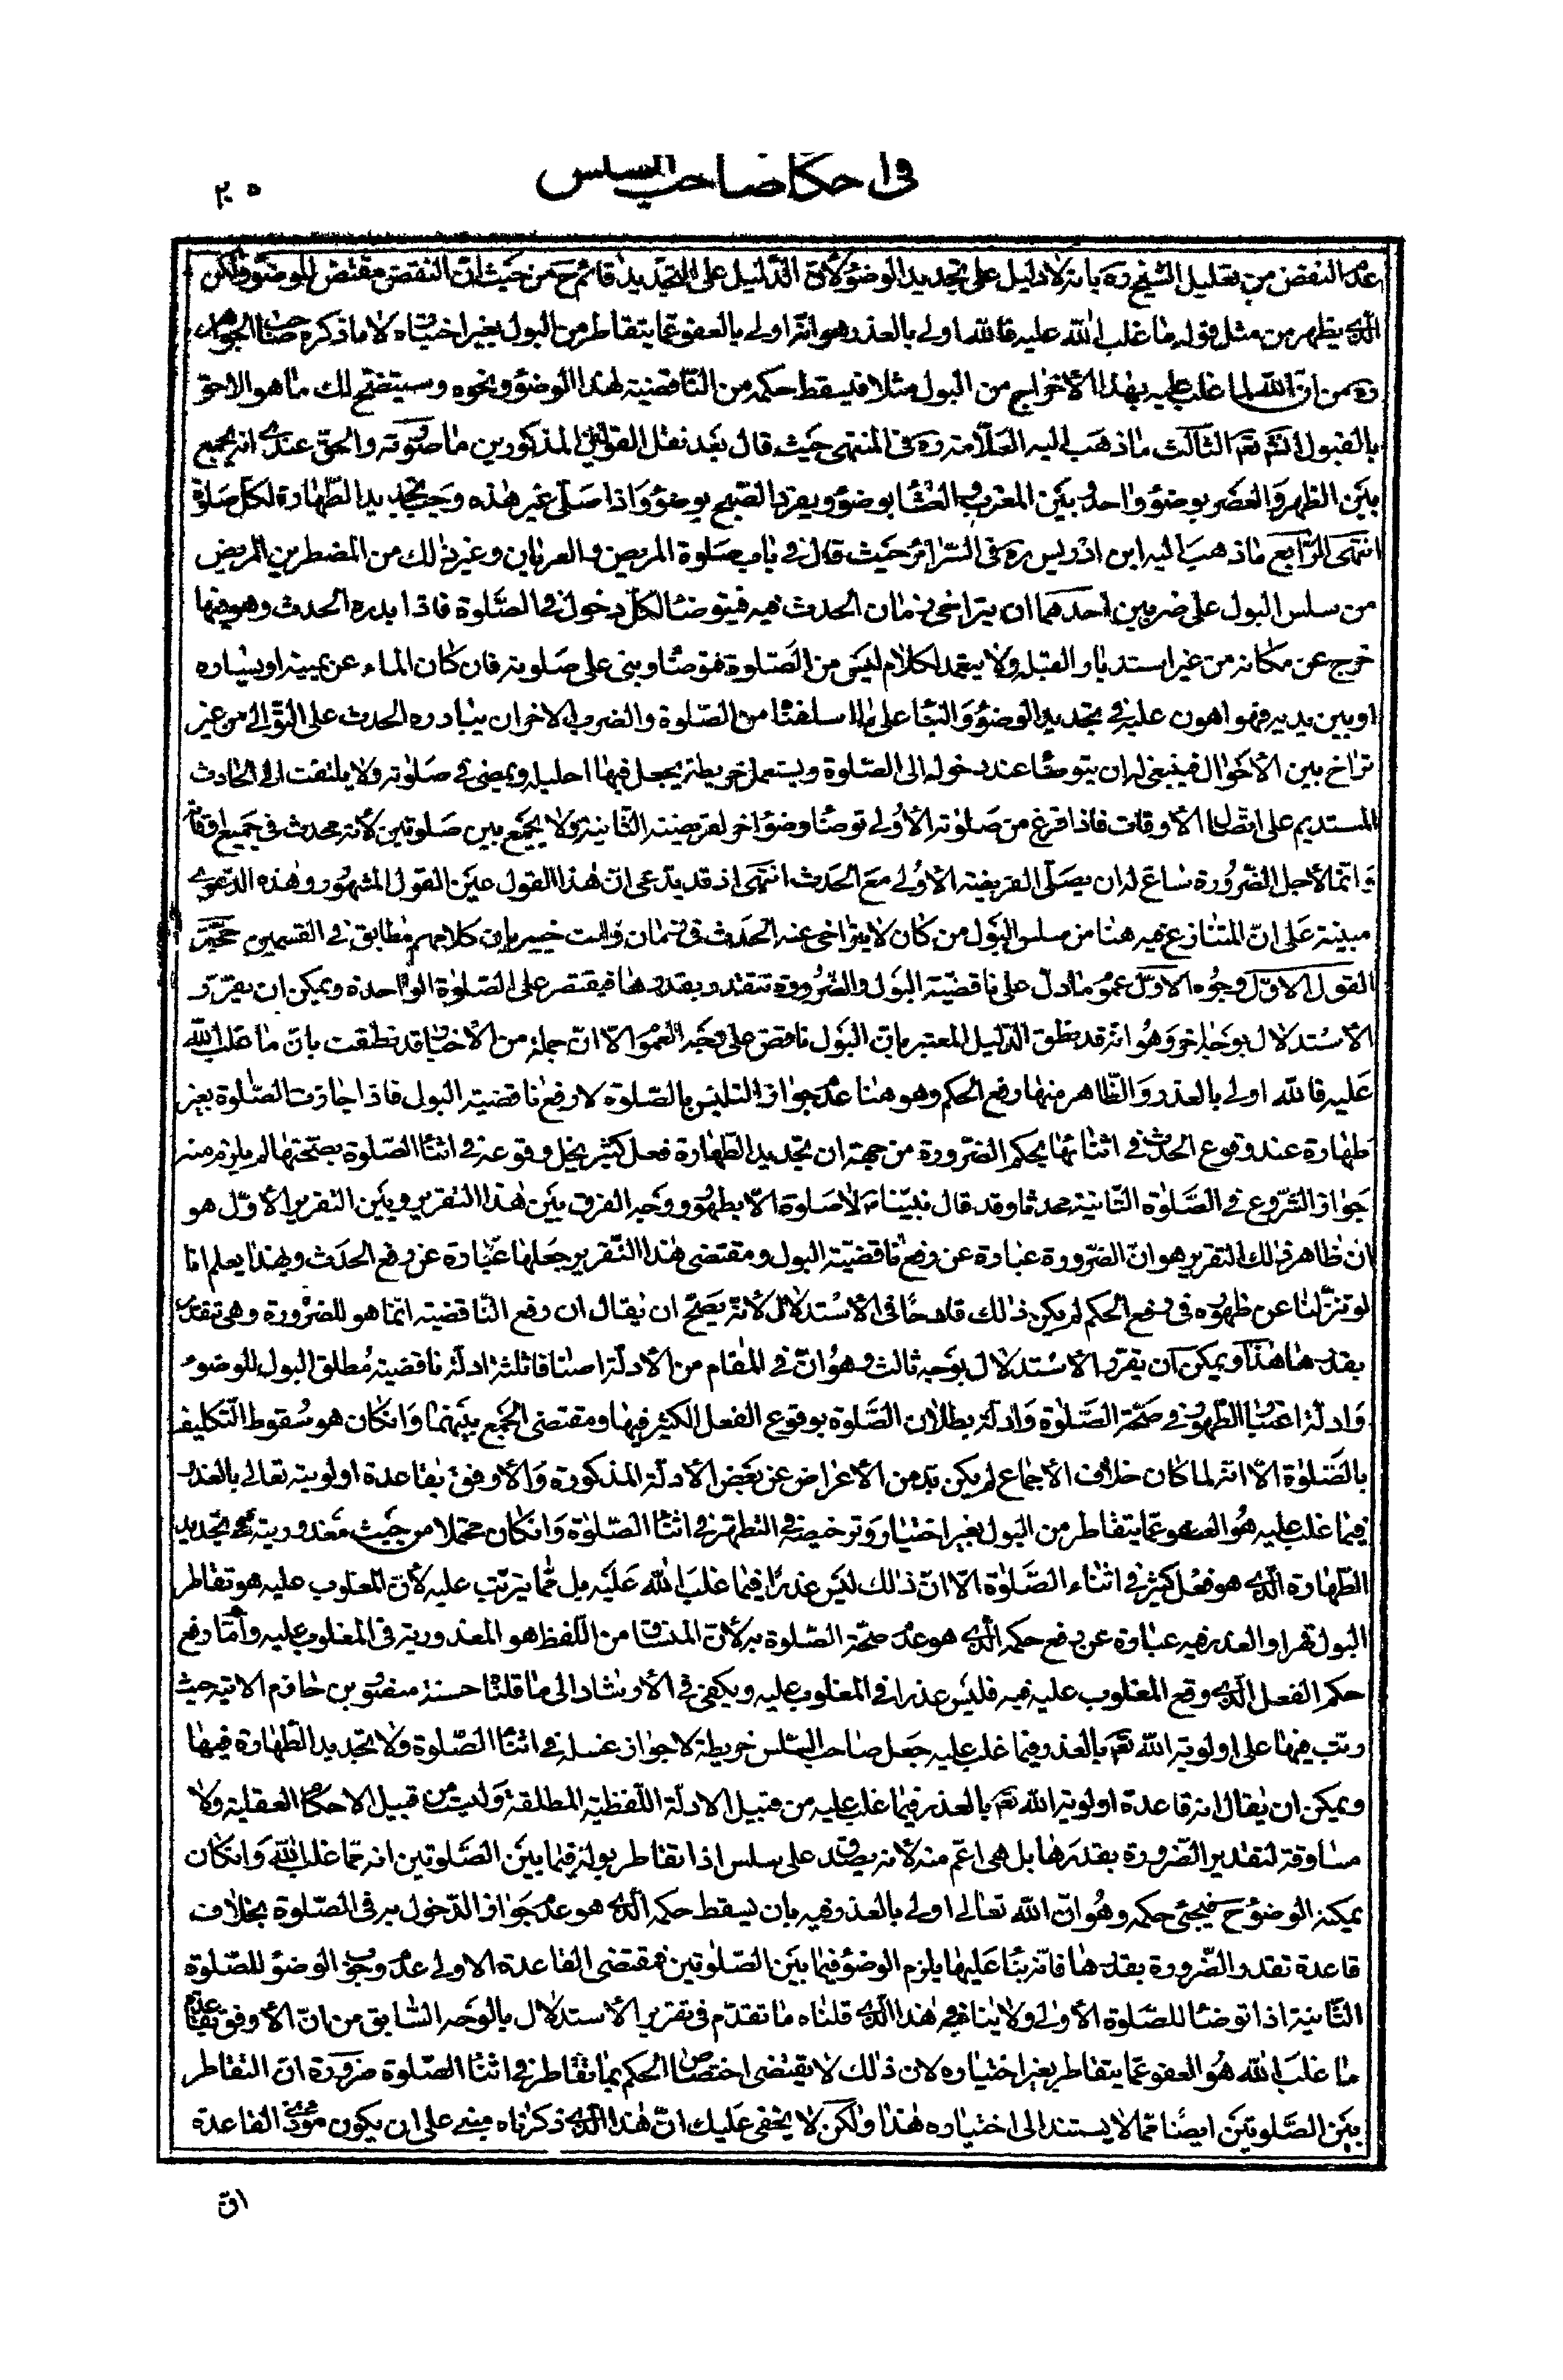 في احكام صاحب السلس
٢٠٥
عدم النقض من تعليل الشيخ ره بانه لا دليل على تجديد الوضوء لأن الدّليل على التجديد قائم ح من حيث انّ النقض مقتض للوضوء ولكن
الّذي يظهر من مثل قوله ما غلب الله عليه فالله اولى بالعذر هو انّه اولى بالعفو عمّا يتقاطر من البول بغير اختياره لا ما ذكره صاحب الجواهر
ره من انّ الله لما غلب عليه بهذا الأخراج من البول مثلا فيسقط حكمه من النّاقضية لهذا الوضوء ونحوه وسيتضح لك ما هو الاحق
بالقبول انش تعم الثالث ما ذهب اليه العلّامة ره في المنتهى حيث قال بعد نقل القولين المذكورين ما صورته والحق عندي انه يجمع
بين الظهر والعصر بوضوء واحد وبين المغرب والعشاء بوضوء ويفرد الصّبح بوضوء واذا صلّى غير هذه وجب تجديد الطّهارة لكل صلوة
انتهى الرّابع ما ذهب اليه ابن ادريس ره في السّرائر حيث قال في باب صلوة المريض والعريان وغير ذلك من المضطرين المريض
من سلس البول على ضربين احدهما ان يتراخى زمان الحدث فيه فيتوضأ لكلّ دخول في الصّلوة فاذا بدره الحدث وهو فيها
خرج عن مكانه من غير استدبار القبلة ولا يتعمد لكلام ليس من الصّلوة فتوضأ وبنى على صلوته فان كان الماء عن يمينه او يساره
او بين يديه فهو اهون عليه في تجديد الوضوء والبناء على ما سلف من الصّلوة والضرب الاخر ان يبادره الحدث على التّوالي من غير
تراخ بين الأحوال فينبغي له ان يتوضّأ عند دخوله الى الصّلوة ويستعمل خريطة يجعل فيها احليله ويمضي في صلوته ولا يلتفت الى الحادث
المستديم على اتصال الأوقات فاذا فرغ من صلوته الأولى توضّأ وضوء اخر لفريضته الثّانية ولا يجمع بين صلوتين لأنه محدث في جميع اوقاته
وانّما لأجل الضّرورة ساغ له ان يصلّي الفريضة الأولى مع الحدث انتهى اذ قد يدّعى انّ هذا القول عين القول المشهور وهذه الدّعوى
مبنية على انّ المتنازع فيه هنا من سلس البول من كان لا يتراخى عنه الحدث في زمان وانت خبير بان كلامهم مطابق في القسمين حجّة
القول الاوّل وجوه الاوّل عموم ما دل على ناقضيّة البول والضّرورة تتقدر بقدرها فيقتصر على الصّلوة الواحدة ويمكن ان يقرّر
الأستدلال بوجه اخر وهو انّه قد نطق الدّليل المعتبر بانّ البول ناقض على وجه العموم الّا انّ جملة من الأخبار قد نطقت بانّ ما غلب الله
عليه فالله اولى بالعذر والظّاهر منها رفع الحكم وهو هنا عدم جواز التلبّس بالصّلوة لا رفع ناقضية البول فاذا جازت الصّلوة بغير
طهارة عند وقوع الحدث في اثنائها بحكم الضّرورة من جهة ان تجديد الطّهارة فعل كثير يخل وقوعه في اثناء الصّلوة بصحّتها لم يلزم منه
جواز الشّروع في الصّلوة الثّانية محدثا وقد قال نبيّنا لا صلوة الّا بطهور ووجه الفرق بين هذا التقرير وبين التقرير الأوّل هو
ان ظاهر ذلك التقرير هو انّ الضّرورة عبارة عن رفع ناقضيّة البول ومقتضى هذا التّقرير جعلها عبارة عن رفع الحدث وبهذا يعلم انّا
لو تنزّلنا عن ظهوره في رفع الحكم لم يكن ذلك قادحا في الأستدلال لأنّه يصحّ ان يقال ان رفع النّاقضية انّما هو للضرورة وهي تتقدر
بقدرها هذا ويمكن ان يقرّر الأستدلال بوجه ثالث وهو انّ في المقام من الأدلّة اصنافا ثلثة ادلّة ناقضية مطلق البول للوضوء
وادلّة اعتبار الطّهور في صحّة الصّلوة وادلّة بطلان الصّلوة بوقوع الفعل الكثير فيها ومقتضى الجمع بينهما وانكان هو سقوط التّكليف
بالصّلوة الّا انّه لما كان خلاف الأجماع لم يكن بد من الأعراض عن بعض الأدلّة المذكورة والأوفق بقاعدة اولويته تعالى بالعذر
فيما غلب عليه هو العفو عمّا يتقاطر من البول بغير اختيار وترخيصه في التطهر في اثناء الصّلوة وانكان محتملا من حيث معذوريته تجديد
الطّهارة الّذي هو فعل كثير في اثناء الصّلوة الّا انّ ذلك ليس عذرا فيما غلب الله عليه بل ممّا يترتّب عليه لأنّ المغلوب عليه هو تقاطر
البول قهرا والعذر فيه عبارة عن رفع حكمه الّذي هو عدم صحّة الصّلوة به لأنّ المنساق من اللّفظ هو المعذورية في المغلوب عليه وامّا رفع
حكم الفعل الّذي وقع المغلوب عليه فيه فليس عذرا في المغلوب عليه ويكفي في الأرشاد الى ما قلنا حسنة منصور بن حازم الاتية حيث
رتّب فيها على اولوية الله تعم بالعذر فيما غلب عليه جعل صاحب السّلس خريطة لا جواز غسله في اثناء الصّلوة ولا تجديد الطّهارة فيها
ويمكن ان يقال انه قاعدة اولوية الله تعم بالعذر فيما غلب عليه من قبيل الادلّة اللّفظية المطلقة وليست من قبيل الاحكام العقلية ولا
مساوقة لتقدير الضّرورة بقدرها بل هي اعم منه لأنه يصدق على سلس اذا تقاطر بوله فيما بين الصّلوتين انه ممّا غلب الله وانكان
يمكنه الوضوء ح فيجئ حكمه وهو انّ الله تعالى اولى بالعذر فيه بان يسقط حكمه الّذي هو عدم جواز الدّخول به في الصّلوة بخلاف
قاعدة تقدر الضّرورة بقدرها فانّه بناء عليها يلزم الوضوء فيما بين الصّلوتين فمقتضى القاعدة الاولى عدم وجوب الوضوء للصّلوة
الثّانية اذا توضأ للصّلوة الأولى ولا ينافي هذا الّذي قلناه ما تقدّم في تقرير الأستدلال بالوجه السّابق من انّ الأوفق بقاعدة
ما غلب الله هو العفو عمّا يتقاطر بغير اختياره لان ذلك لا يقتضي اختصاص الحكم بما تقاطر في اثناء الصّلوة ضرورة انّ التقاطر
بين الصّلوتين ايضا ممّا لا يستند الى اختياره هذا ولكن لا يخفى عليك انّ هذا الّذي ذكرناه مبني على ان يكون مؤدّى القاعدة
انّ